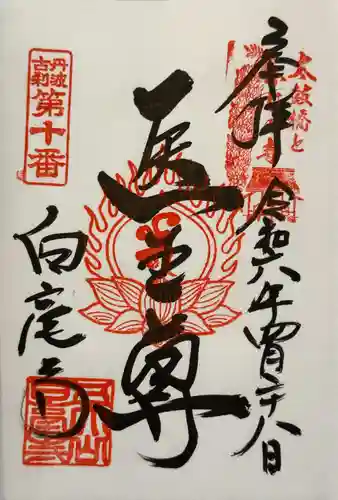 太鼓橋と
奉拝
令和六年四月二十八日
医王尊
丹波
古刹
第十番
白毫寺